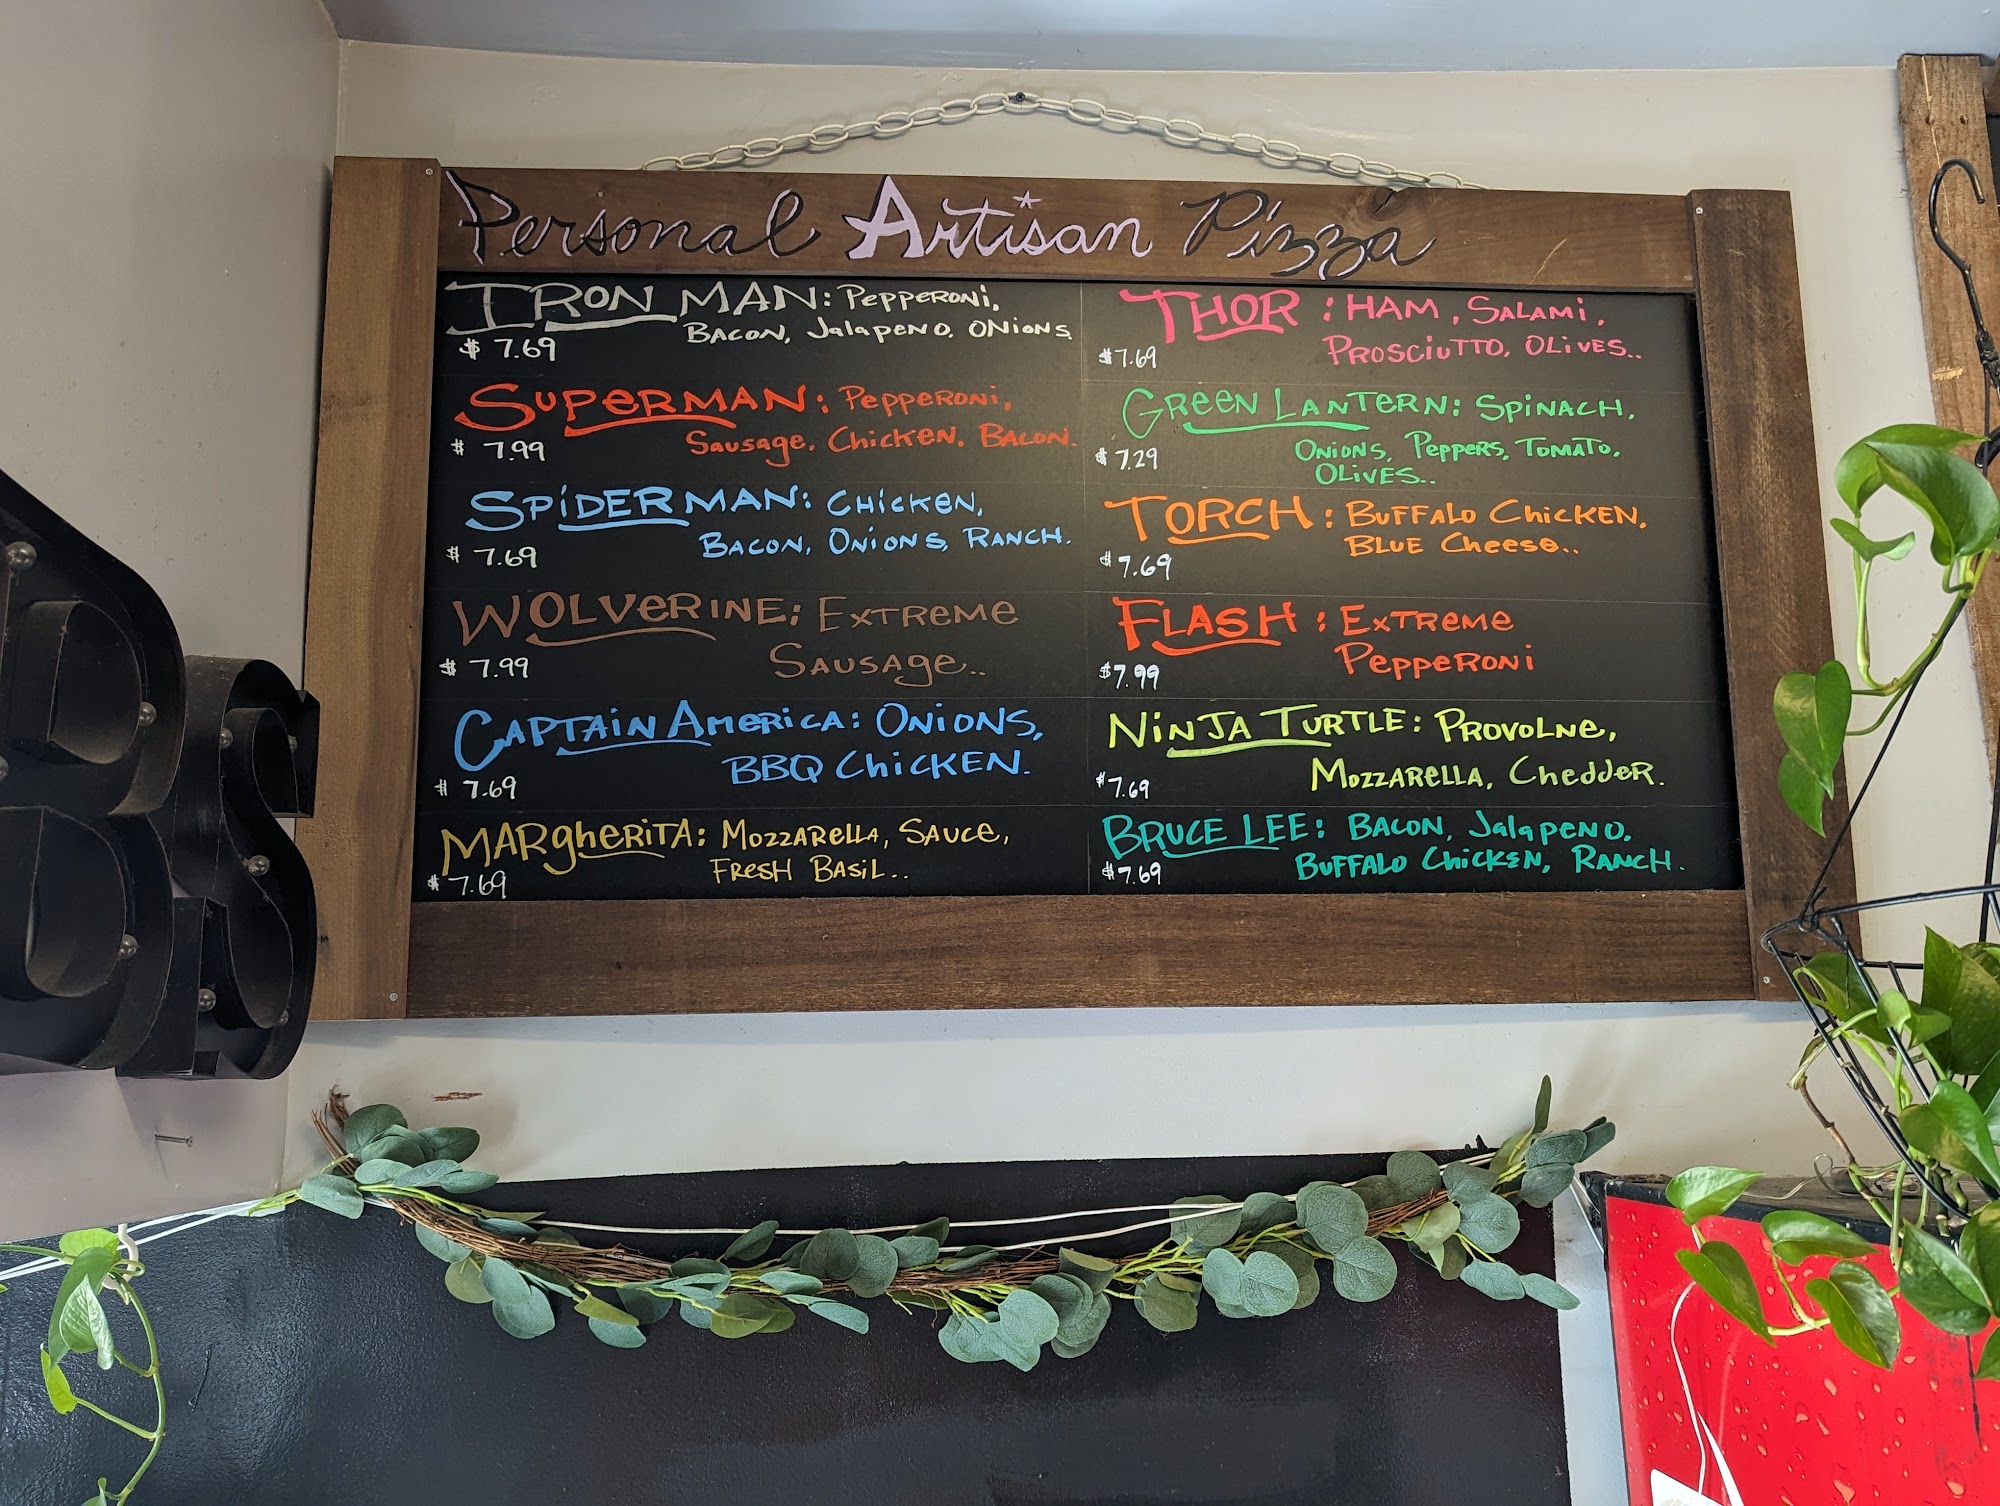 Personal Artisan Pizza
IRON MAN: Pepperoni,
Bacon, Jalapeno, Onions
$ 7.69
SUPERMAN: Pepperoni,
Sausage, Chicken, Bacon.
$ 7.99
SPIDERMAN: Chicken,
Bacon, Onions, Ranch.
$ 7.69
WOLVERINE: Extreme
Sausage..
$ 7.99
CAPTAIN AMERICA: Onions,
BBQ Chicken.
$ 7.69
MARgherITA: Mozzarella, Sauce,
Fresh Basil..
$ 7.69
THOR: HAM, Salami,
Prosciutto, Olives..
$7.69
GREEN LANTERN: Spinach,
Onions, Peppers, Tomato,
Olives..
$ 7.29
TORCH: Buffalo Chicken,
Blue Cheese..
$7.69
FLASH: Extreme
Pepperoni
$7.99
NINJA TURTLE: Provolne,
Mozzarella, Chedder.
$7.69
BRUCE LEE: Bacon, Jalapeno,
Buffalo Chicken, Ranch.
$7.69